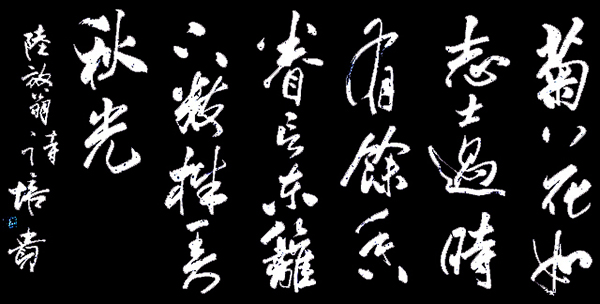 菊花如
志士過時
有餘香
眷言東籬
下數枝弄
秋光
陸放翁詩培貴